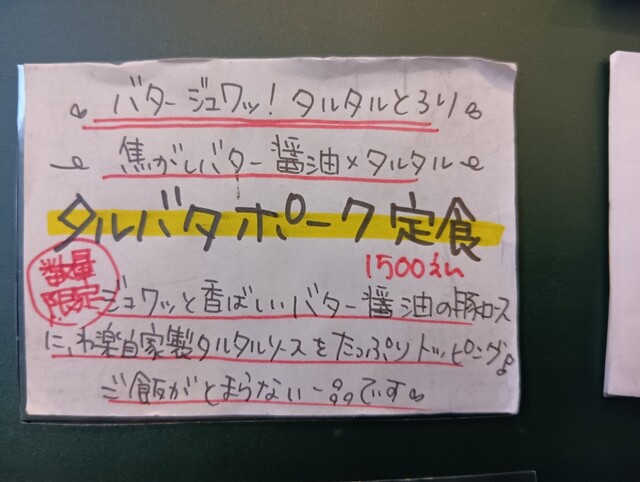 バタージュワッ!タルタルとろり
焦がしバター醤油×タルタル
タルバタポーク定食
1500えん
数量
限定
ジュワッと香ばしいバター醤油の豚ロース
に、わ楽自家製タルタルソースをたっぷりトッピング。
ご飯がとまらない一品です。